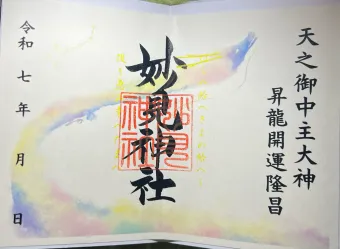 天之御中主大神
昇龍開運隆昌
妙見神社
妙見神社
令和七年 月 日